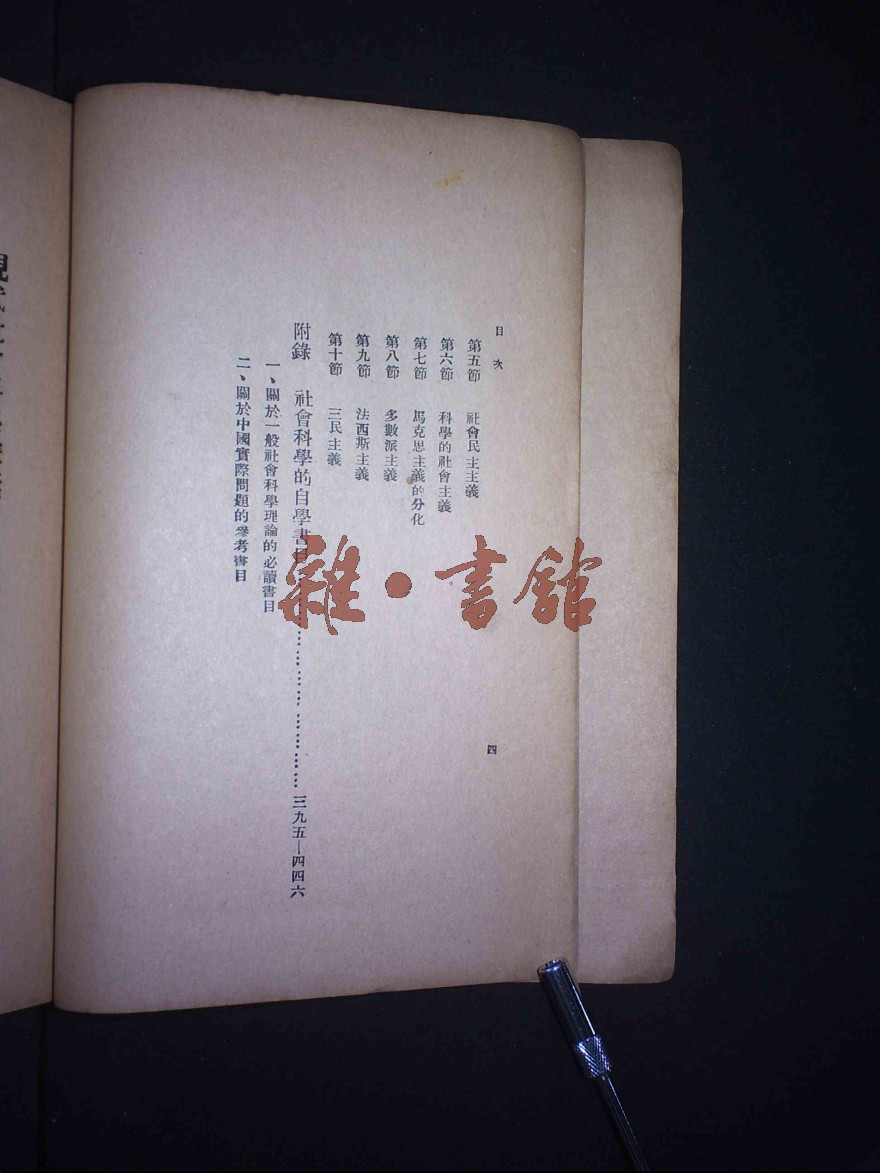 目次
第五節 社會民主主義
第六節 科學的社會主義
第七節 馬克思主義的分化
第八節 多數派主義
第九節 法西斯主義
第十節 三民主義
附錄 社會科學的自學書目…………………………三九五—四四六
一、關於一般社會科學理論的必讀書目
二、關於中國實際問題的參考書目
四
雜·書館